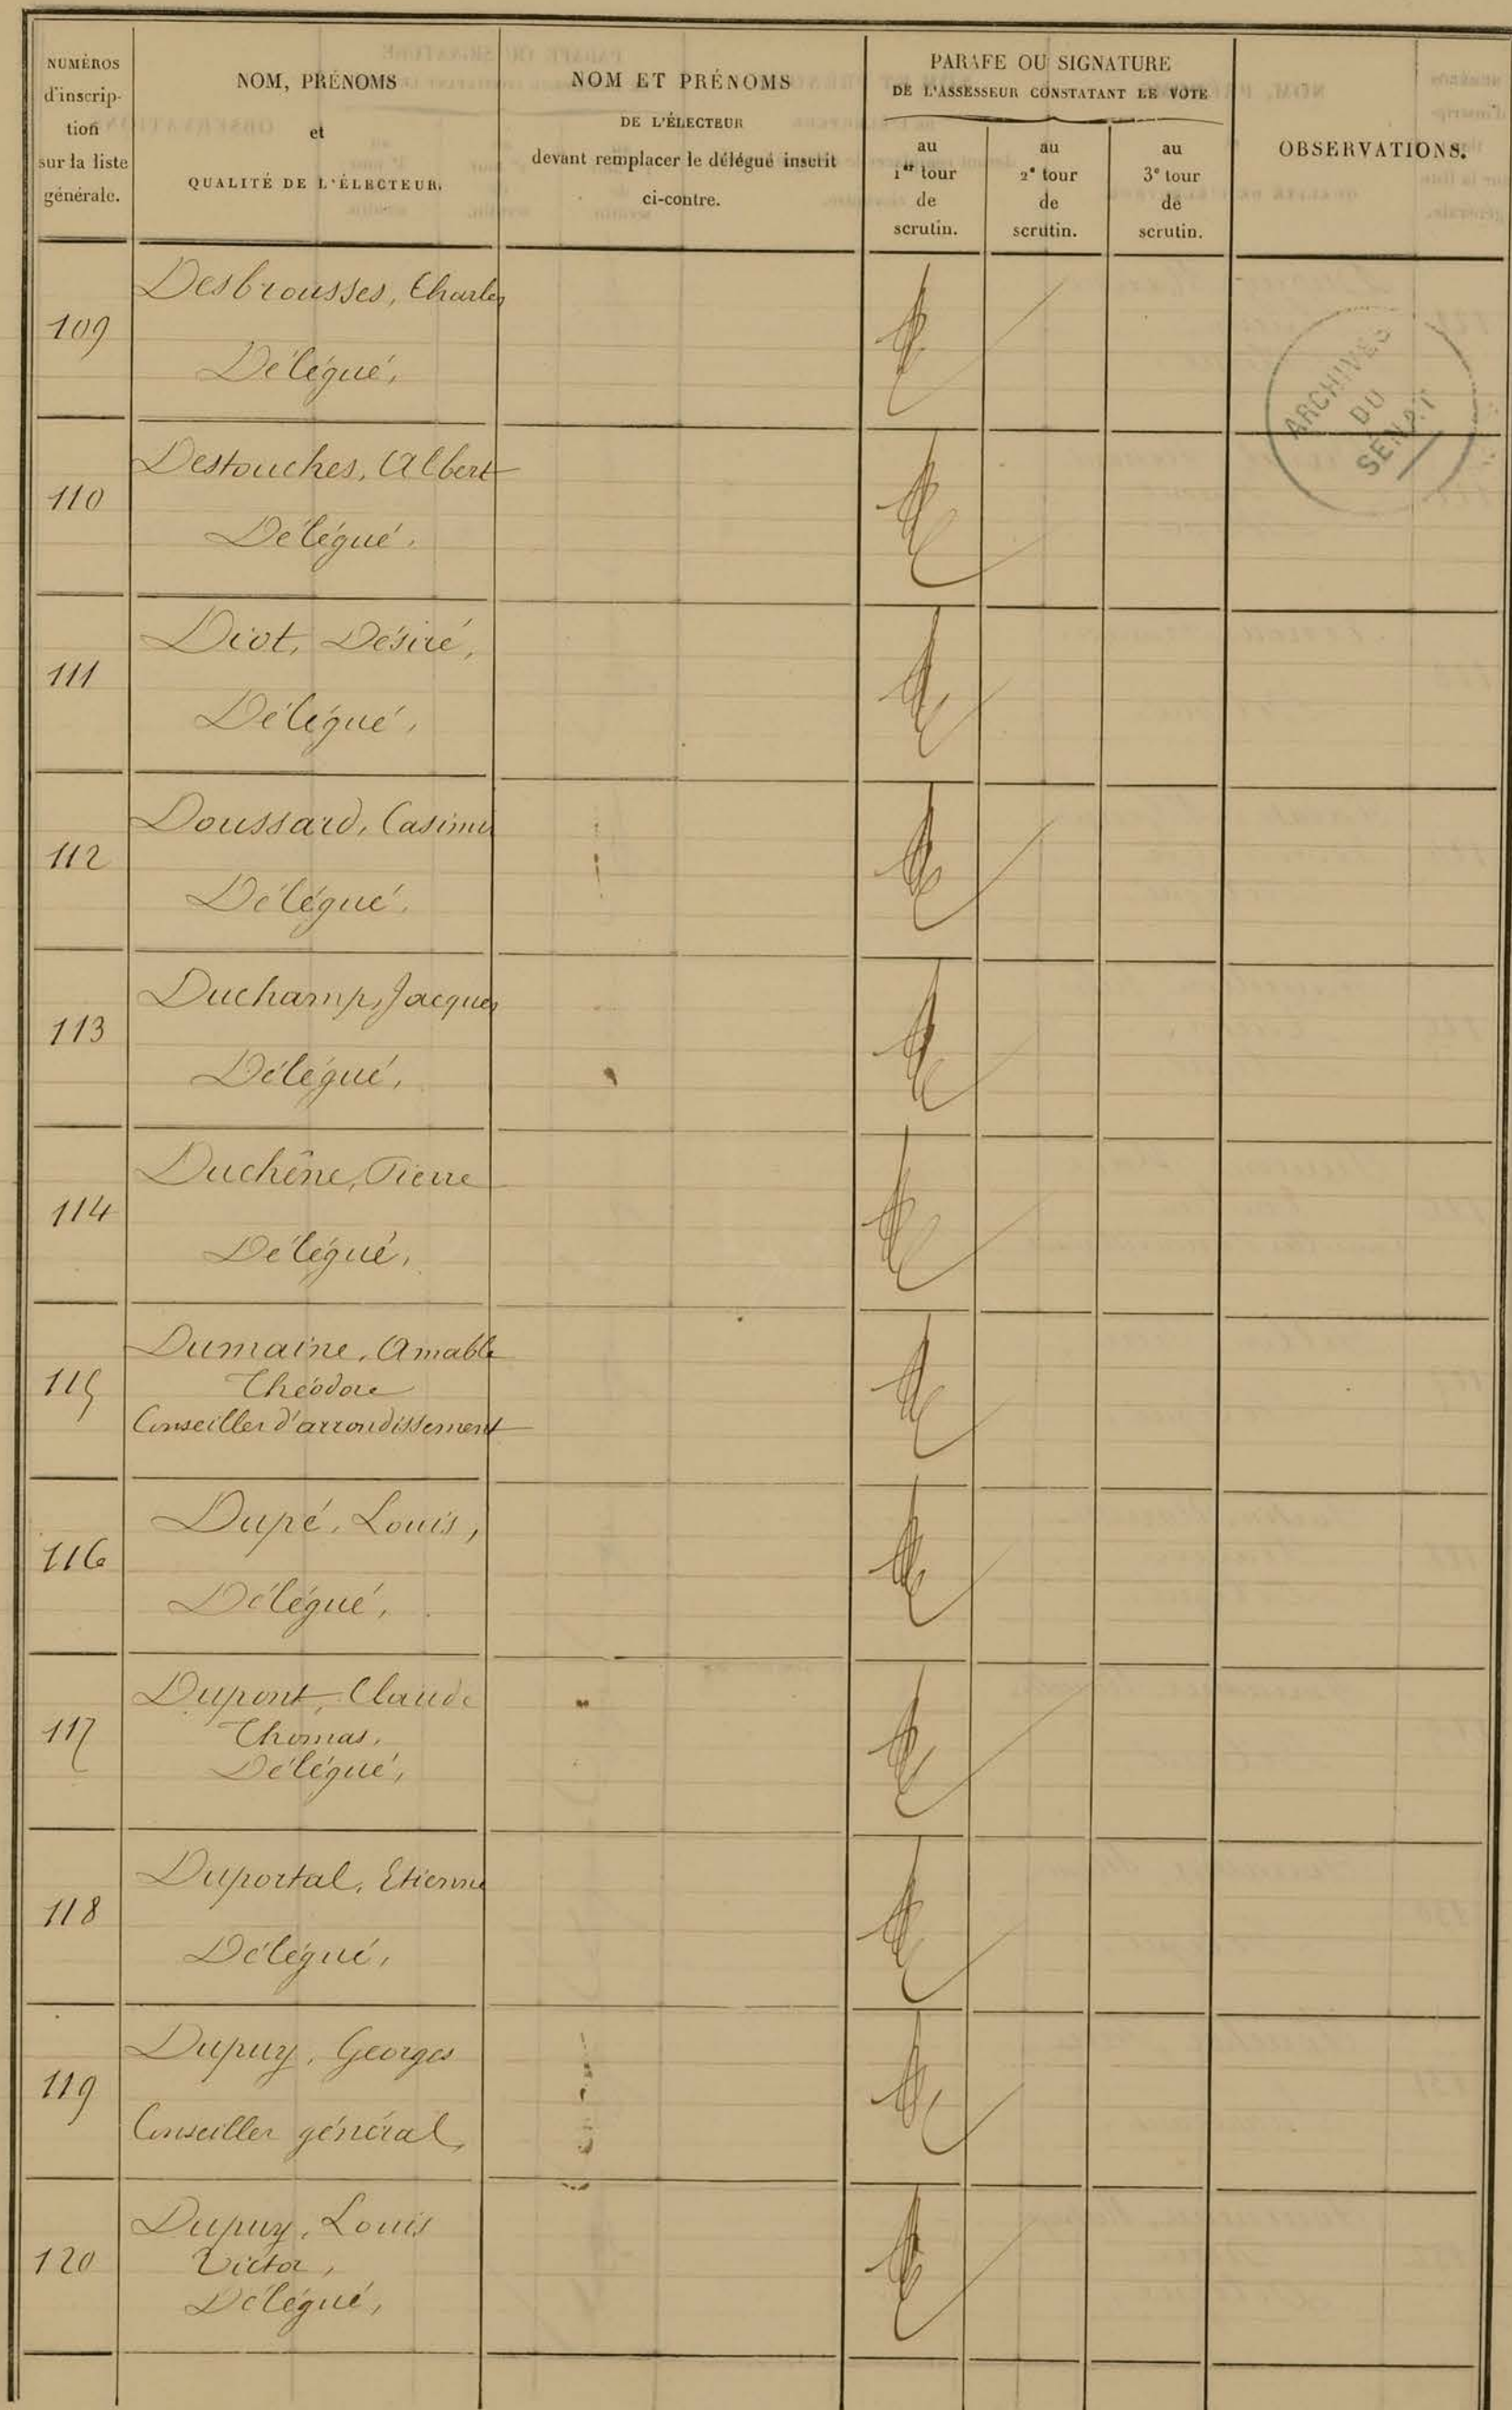 NUMÉROS
d'inscrip-
tion
sur la liste
générale.
NOM, PRÉNOMS
et
QUALITÉ DE L'ÉLECTEUR.
NOM ET PRÉNOMS
DE L'ÉLECTEUR
devant remplacer le délégué inscrit
ci-contre.
PARAFE OU SIGNATURE
DE L'ASSESSEUR CONSTATANT LE VOTE
au
1er tour
de
scrutin.
au
2e tour
de
scrutin.
au
3e tour
de
scrutin.
OBSERVATIONS.
ARCHIVES
DU
SÉNAT
Desbrousses, Charles
109
Délégué,
Destouches, Albert
110
Délégué.
Diot, Désiré,
111
Délégué,
Doussard, Casimir
112
Délégué.
Duchamp, Jacques
113
Délégué,
Duchêne, Pierre
114
Délégué,
Dumaine, Amable
115 Théodore
Conseiller d'arrondissement
Dupé, Louis,
116
Délégué,
Dupont, Claude
117 Thomas,
Délégué,
Duportal, Etienne
118
Délégué,
Dupuy, Georges
119
Conseiller général,
Dupuy, Louis
120 Victor,
Délégué,